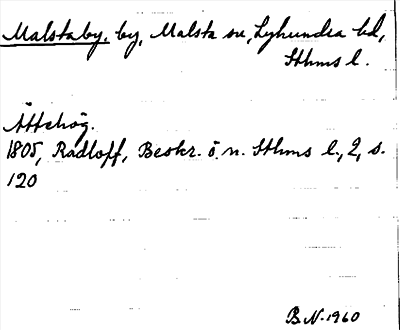 Malstaby, by, Malsta sn, Lyhundra hd,
Sthms l.
Ättehög.
1805, Radloff, Beskr. ö. n. Sthms l., 2, s.
120
B.N. 1960